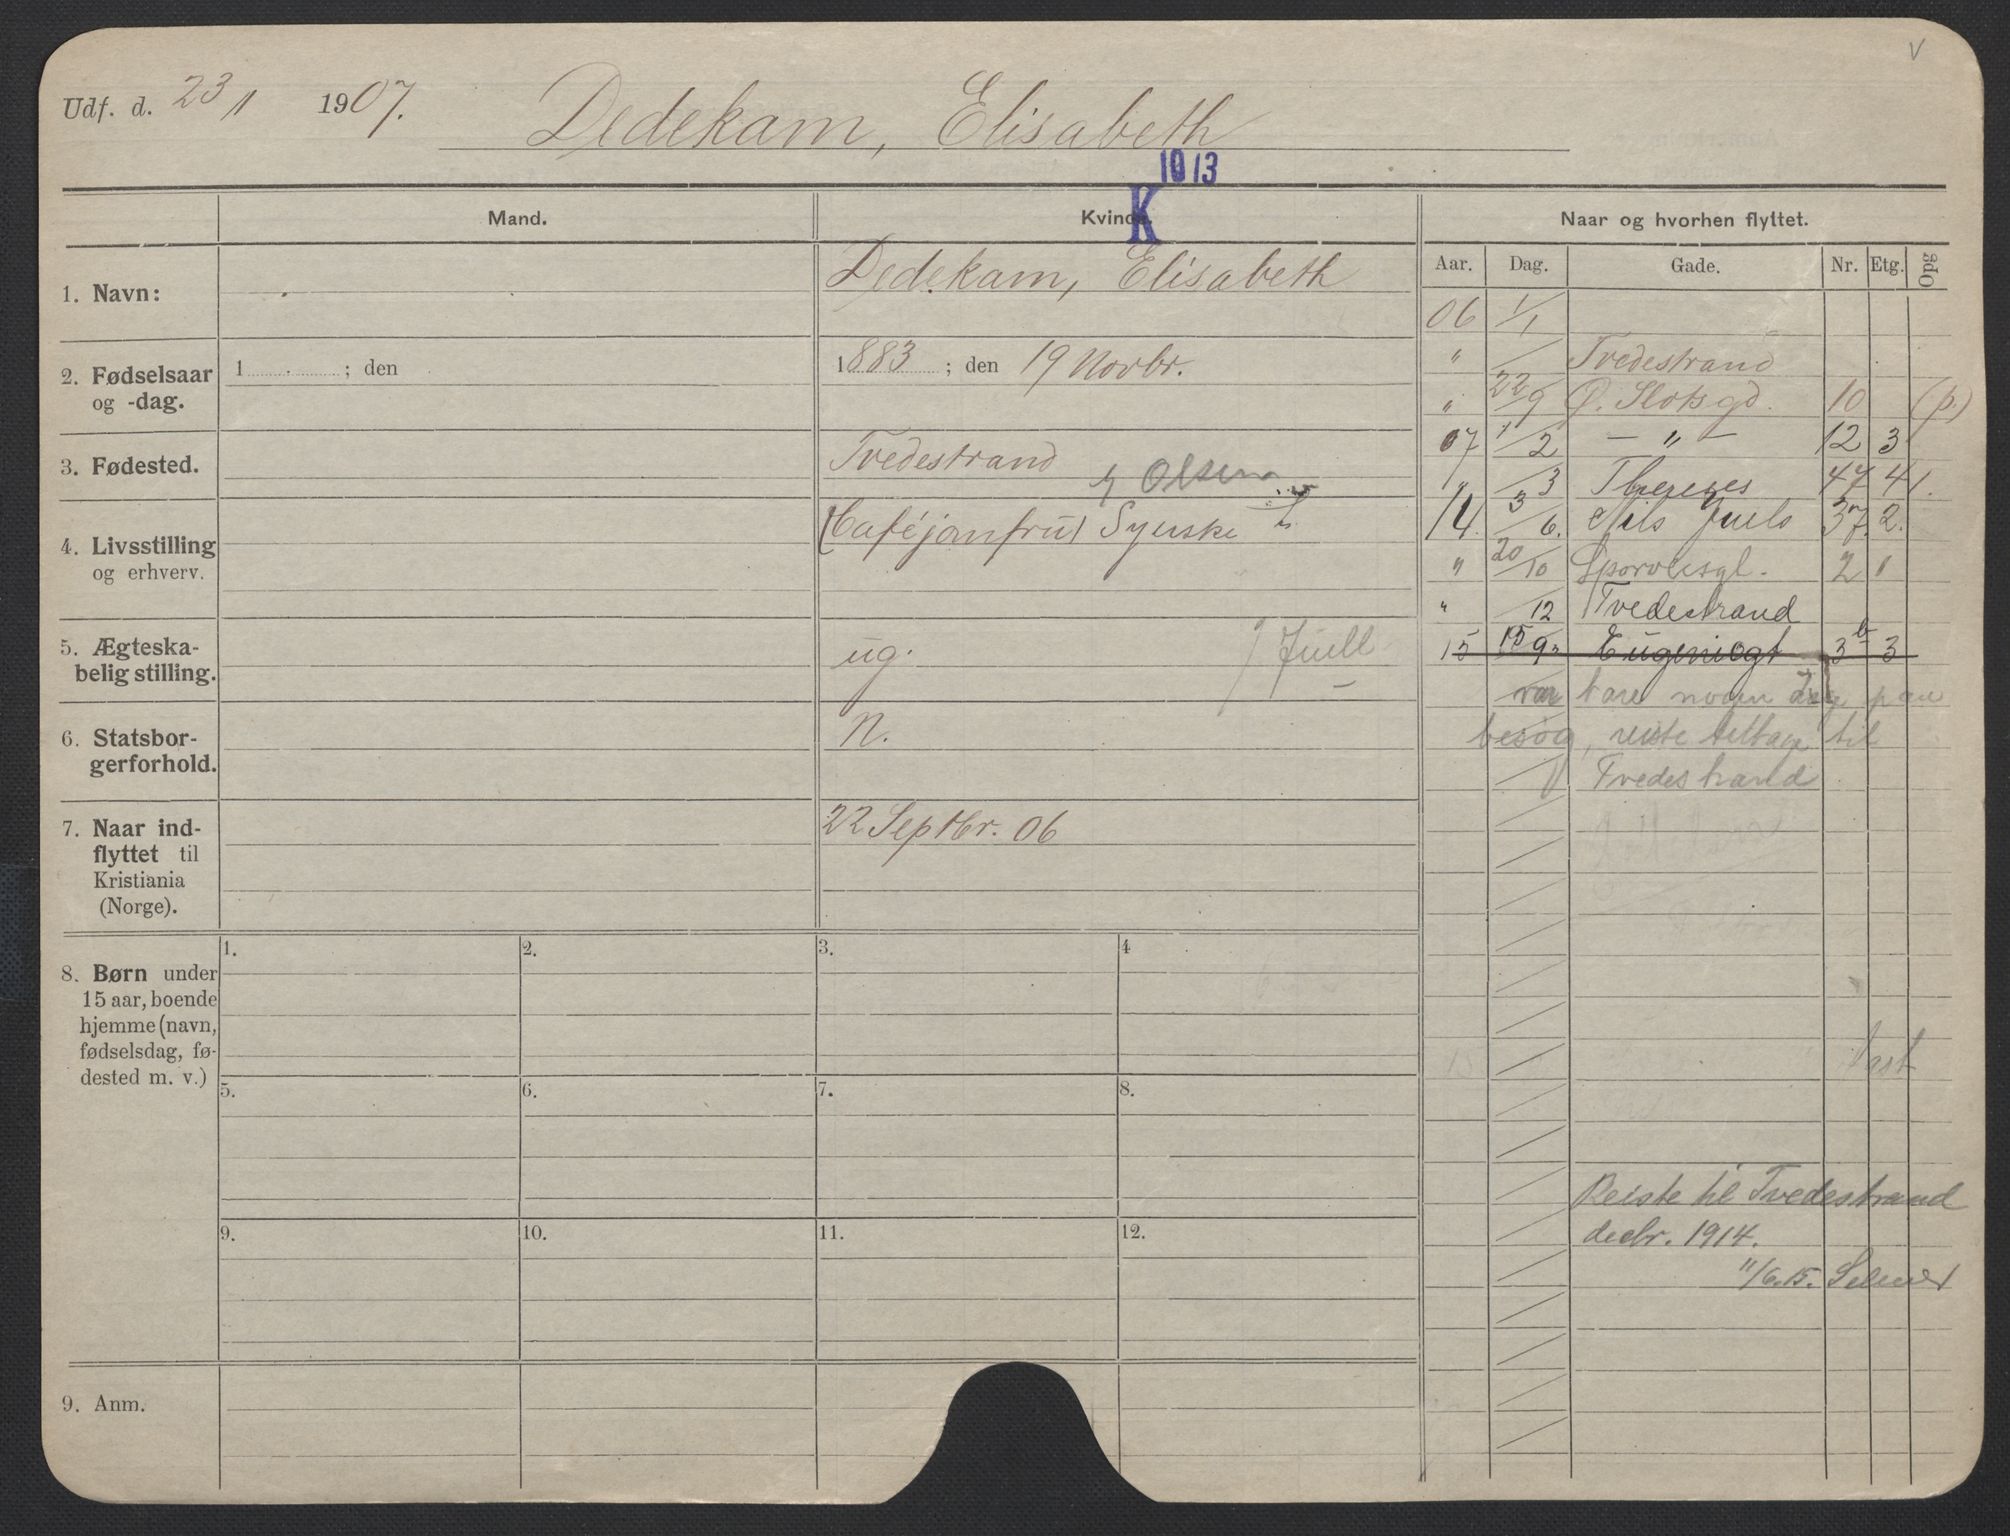 V
Udf. d. 23/1 1907. Dedekam, Elisabeth
1913
K
Mand.
Kvinde.
Naar og hvorhen flyttet.
Aar. Dag. Gade. Nr. Etg. Opg
1. Navn:
Dedekam, Elisabeth
2. Fødselsaar
og -dag.
1 ; den
1883 ; den 19 Novbr.
3. Fødested.
Tvedestrand
Olsen
4. Livsstilling
og erhverv.
(Caféjomfru) Syerske
5. Ægteska-
belig stilling.
ug.
Juell
6. Statsbor-
gerforhold.
N.
7. Naar ind-
flyttet til
Kristiania
(Norge).
22 Septbr. 06
8. Børn under
15 aar, boende
hjemme (navn,
fødselsdag, fø-
dested m. v.)
1. 2. 3. 4
5. 6. 7. 8.
9. 10. 11. 12.
9. Anm.
06 1/1
" / Tvedestrand
" 22/9 Ø. Slotsgd. 10 (p.)
07 1/2 — " — 12 3
" /3 Thereses 47 4 1.
14. 3/6. Nils Juels 37. 2.
" 20/10 Sporveisgt. 2 1
" /12 Tvedestrand
15 15/9 Eugeniegt 3b 3
var bare nogen dag paa
besøg, reiste tilbage til
Tvedestrand
15
Reiste til Tvedestrand
decbr. 1914.
11/6.15. Selmer